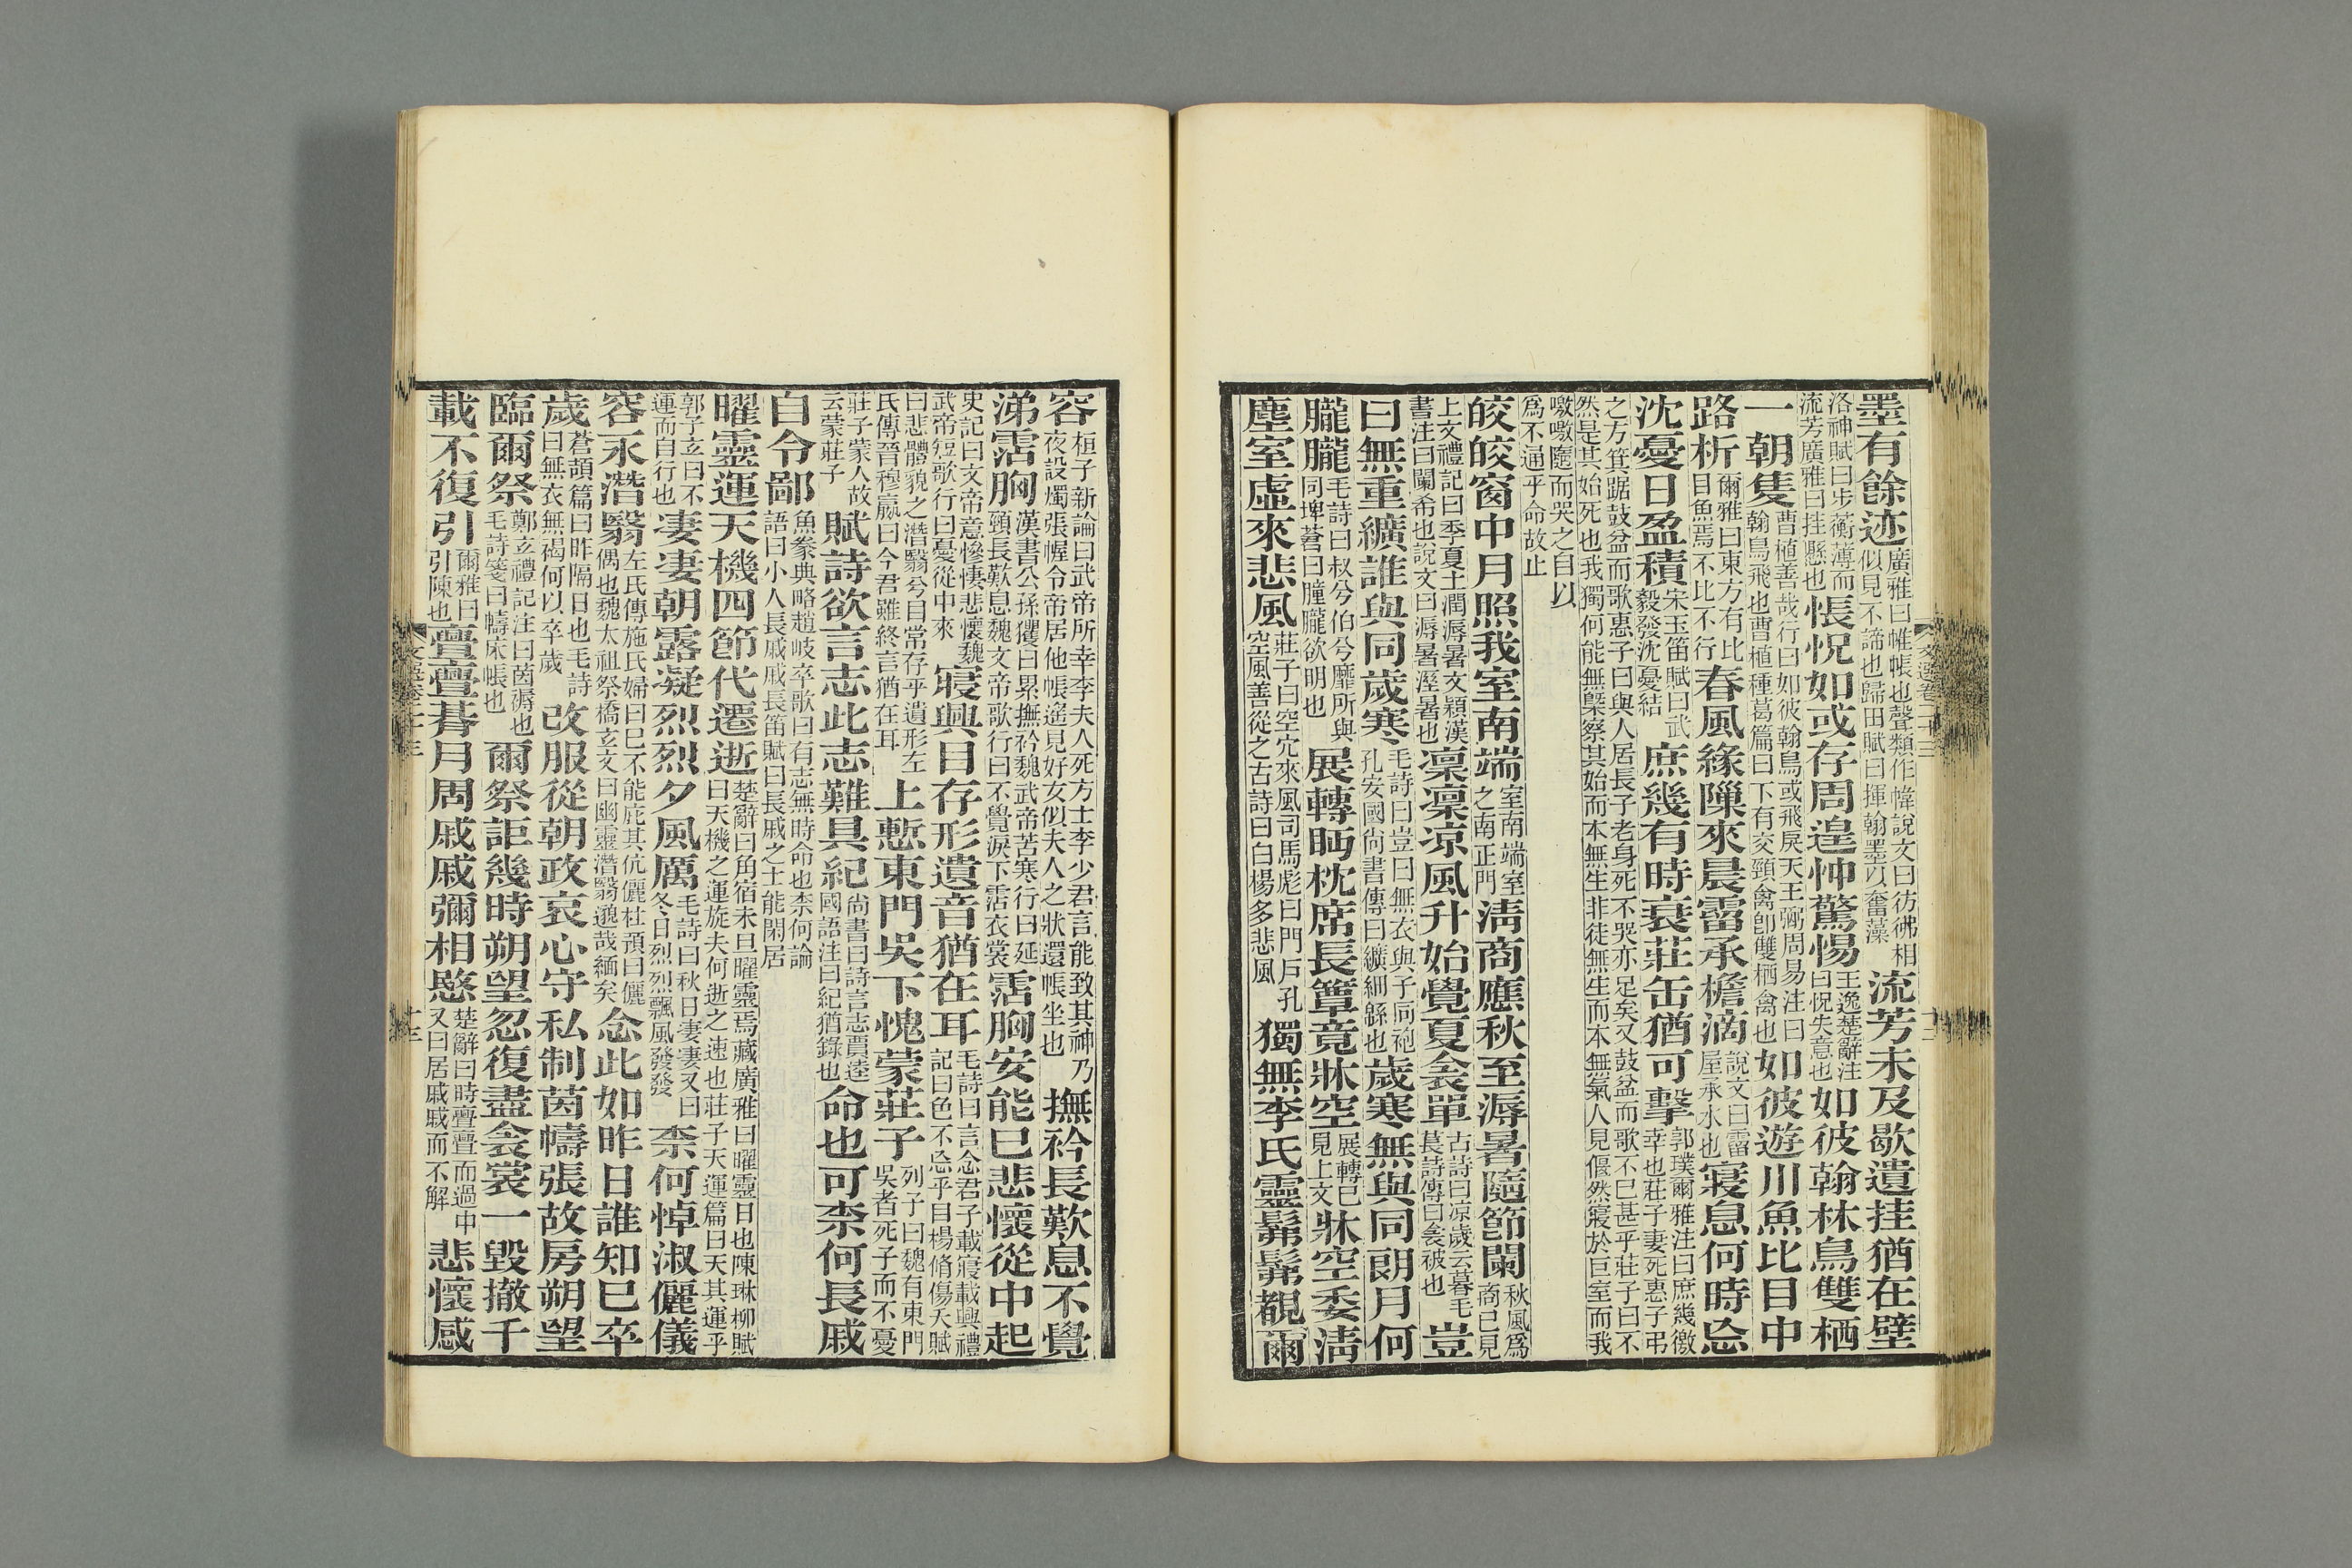 墨有餘迹廣雅曰帷帳也聲類作幃說文曰彷彿相似見不諦也歸田賦曰揮翰墨以奮藻流芳未及歇遺挂猶在壁
洛神賦曰步蘅薄而流芳廣雅曰挂懸也悵怳如或存周遑忡驚惕王逸楚辭注曰怳失意也如彼翰林鳥雙栖
一朝隻曹植善哉行曰如彼翰鳥或飛戾天王弼周易注曰翰鳥飛也曹植種葛篇曰下有交頸禽卽雙栖禽也如彼遊川魚比目中
路析爾雅曰東方有比目魚焉不比不行春風緣隟來晨霤承檐滴說文曰霤屋承水也寢息何時忘
沈憂日盈積宋玉笛賦曰武毅發沈憂結庶幾有時衰莊缶猶可擊郭璞爾雅注曰庶幾徼幸也莊子妻死惠子弔
之方箕踞鼓盆而歌惠子曰與人居長子老身死不哭亦足矣又鼓盆而歌不巳甚乎莊子曰不然是其始死也我獨何能無槩察其始而本無生非徒無生而本無氣人見偃然寢於巨室而我
噭噭隨而哭之自以爲不通乎命故止
皎皎窗中月照我室南端室南端室之南正門淸商應秋至溽暑隨節闌秋風爲商巳見
上文禮記曰季夏土潤溽暑文穎漢書注曰闌希也說文曰溽暑溼暑也凜凜凉風升始覺夏衾單古詩曰凉歲云暮毛萇詩傳曰衾被也豈
曰無重纊誰與同歲寒毛詩曰豈曰無衣與子同袍孔安國尙書傳曰纊細緜也歲寒無與同朗月何
朧朧毛詩曰叔兮伯兮靡所與同埤蒼曰朣朧欲明也展轉眄枕席長簟竟牀空展轉巳見上文牀空委淸
塵室虛來悲風莊子曰空穴來風司馬彪曰門戶孔空風善從之古詩曰白楊多悲風獨無李氏靈髣髴覩爾
文選卷二十三
十三
容桓子新論曰武帝所幸李夫人死方士李少君言能致其神乃夜設燭張幄令帝居他帳遙見好女似夫人之狀還帳坐也撫衿長歎息不覺
涕霑胸漢書公孫玃曰累撫衿魏武帝苦寒行曰延頸長歎息魏文帝歌行曰不覺淚下霑衣裳霑胸安能已悲懷從中起
史記曰文帝意慘悽悲懷魏武帝短歌行曰憂從中來寢興目存形遺音猶在耳毛詩曰言念君子載寢載興禮記曰色不忘乎目楊脩傷夭賦
曰悲體貌之潛翳兮目常存乎遺形左氏傳晉穆嬴曰今君雖終言猶在耳上慙東門吳下愧蒙莊子列子曰魏有東門吳者死子而不憂
莊子蒙人故云蒙莊子賦詩欲言志此志難具紀尙書曰詩言志賈逵國語注曰紀猶錄也命也可柰何長戚
自令鄙魚豢典略趙岐卒歌曰有志無時命也柰何論語曰小人長戚戚長笛賦曰長戚之士能閑居
曜靈運天機四節代遷逝楚辭曰角宿未旦曜靈焉藏廣雅曰曜靈日也陳琳柳賦曰天機之運旋夫何逝之速也莊子天運篇曰天其運乎
郭子玄曰不運而自行也凄凄朝露凝烈烈夕風厲毛詩曰秋日凄凄又曰冬日烈烈飄風發發柰何悼淑儷儀
容永潛翳左氏傳施氏婦曰巳不能庇其伉儷杜預曰儷偶也魏太祖祭橋玄文曰幽靈潛翳邈哉緬矣念此如昨日誰知巳卒
歲蒼頡篇曰昨隔日也毛詩曰無衣無褐何以卒歲改服從朝政哀心守私制茵幬張故房朔望
臨爾祭鄭玄禮記注曰茵褥也毛詩箋曰幬床帳也爾祭詎幾時朔望忽復盡衾裳一毀撤千
載不復引爾雅曰引陳也亹亹朞月周戚戚彌相愍楚辭曰時亹亹而過中又曰居戚戚而不解悲懷感